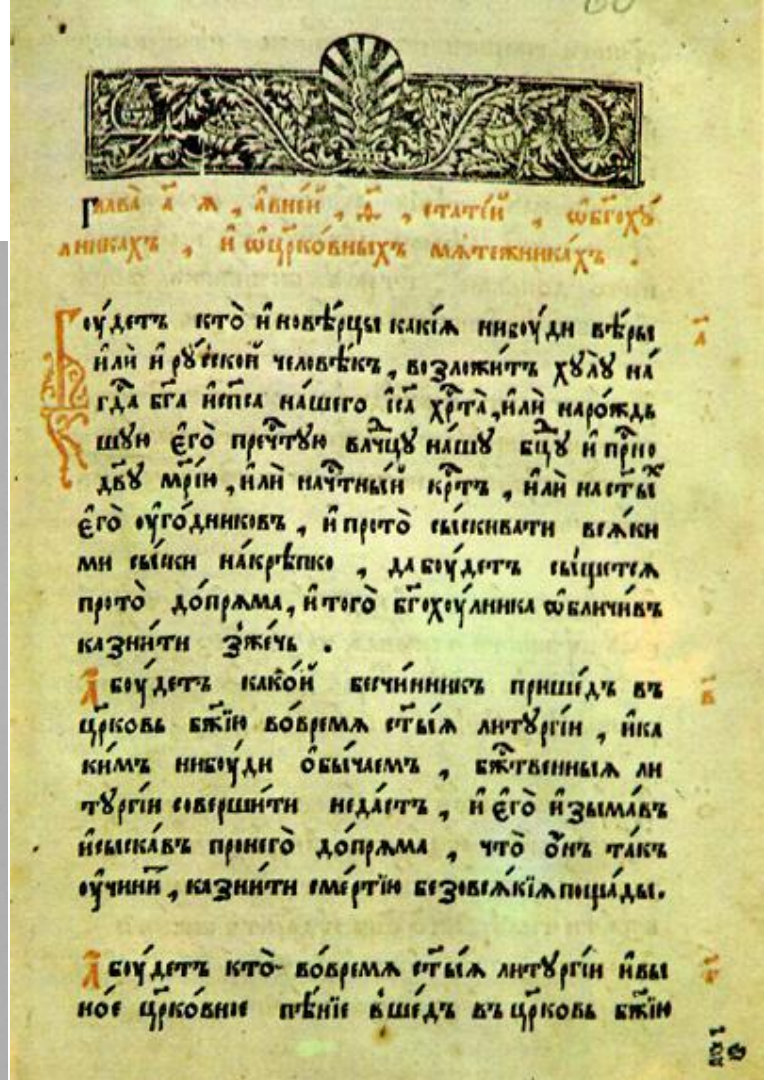 Глава̀ а҃ ѧ , а҆ вне́й , ѳ҃ , стате́й , ѡ҆бг҃охꙋ́
лникахъ , и҆ ѡ҆цр҃ко́вныхъ мѧте́жникахъ .
Боу́детъ кто̀ и҆новѣ́рцы какі́ѧ нибоу́ди вѣ́ры
и҆лѝ и҆ рꙋ́сской человѣ́къ , возложи́тъ хꙋлꙋ̀ на́
гдⷭ҇а бг҃а и҆сп҃са на́шего і҆с҃а хрⷭ҇та̀ , и҆лѝ наро́ждь
шꙋю є҆го̀ пречⷭ҇тꙋю влⷣчцꙋ на́шꙋ бц҃ꙋ и҆ прⷭ҇но
дв҃ꙋ мр҃і́ю , и҆лѝ начⷭ҇тны́й крⷭ҇тъ , и҆лѝ наст҃ы́хъ
є҆го̀ оу҆го́дниковъ , и҆ прото̀ сы́скивати всѧ́ки
ми сы́ски на́крѣпко , да боу́детъ сы́щетсѧ
прото̀ до́прѧма , и҆ того̀ бг҃охоу́лника ѡ҆бличи́въ
казни́ти зже́чь .
А боу́детъ како́й безчи́нникъ прише́дъ въ
цр҃ковь бж҃їю во́времѧ ст҃ы́ѧ литꙋргі́и , и҆ка
ки́мъ нибоу́ди ѻ҆бы́чаемъ , бжⷭ҇твенныѧ ли
тꙋргі́и соверши́ти неда́стъ , и҆ є҆го̀ и҆зыма́въ
и҆сыска́въ пронего̀ до́прѧма , что̀ ѻ҆́нъ та́къ
оу҆чини́тъ , казни́ти сме́ртїю безовсѧ́кїѧ поща́ды .
А боу́детъ кто̀ во́времѧ ст҃ы́ѧ литꙋргі́и и҆вы
но́е цр҃ко́вное пѣ́нїе вше́дъ въ цр҃ковь бж҃їю
а҃
в҃
г҃